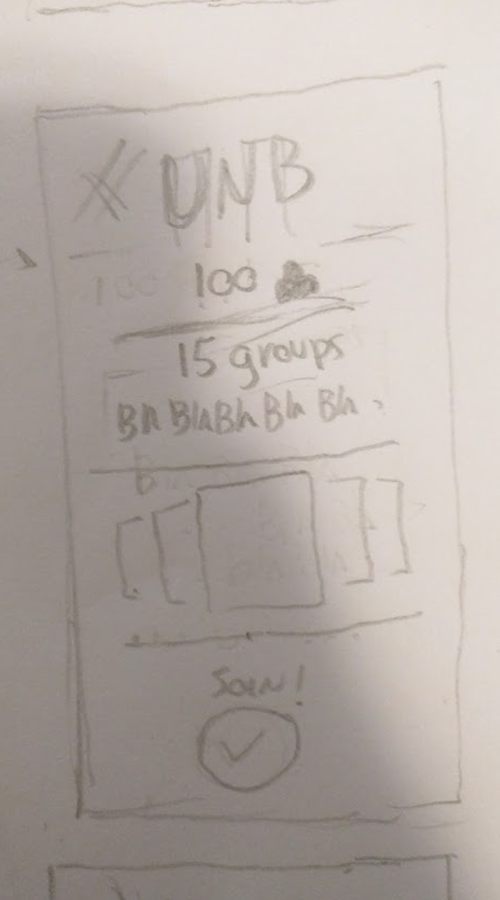 X UNB
100
15 groups
Bla Bla Bla Bla Bla
Join!